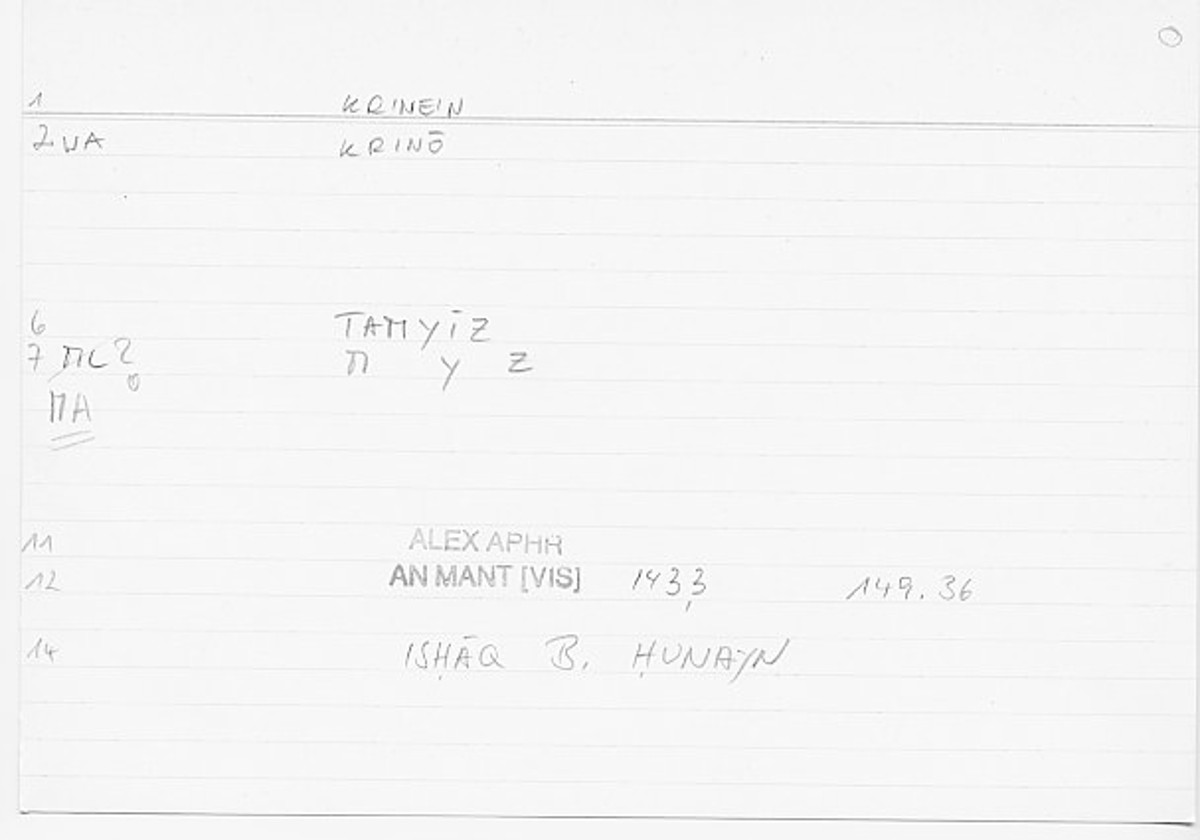 1 KRINEIN
2 VA KRINŌ
6 TAMYĪZ
7 MC? M Y Z
MA
11 ALEX APHR
12 AN MANT [VIS] 143 3, 149.36
14 ISḤĀQ B. ḤUNAYN